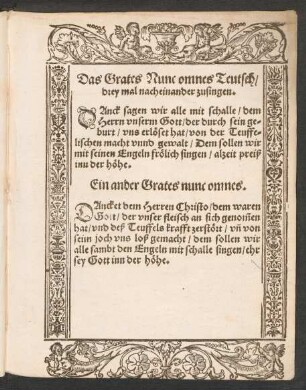 Das Grates Nunc omnes Teutsch/
drey mal nacheinander zusingen.
DAnck sagen wir alle mit schalle/dem
Herrn vnserm Gott/der durch sein ge-
burt/vns erlöset hat/von der Teuffe-
lischen macht vnnd gewalt/Dem sollen wir
mit seinen Engeln frölich singen/alzeit preiß
inn der höhe.
Ein ander Grates nunc omnes.
DAncket dem Herren Christo/dem waren
Gott/der vnser fleisch an sich genom̄en
hat/vnd deß Teuffels krafft zerstört/vn̄ von
seim joch vns loß gemacht/dem sollen wir
alle sambt den Engeln mit schalle singen/ehr
sey Gott inn der höhe.